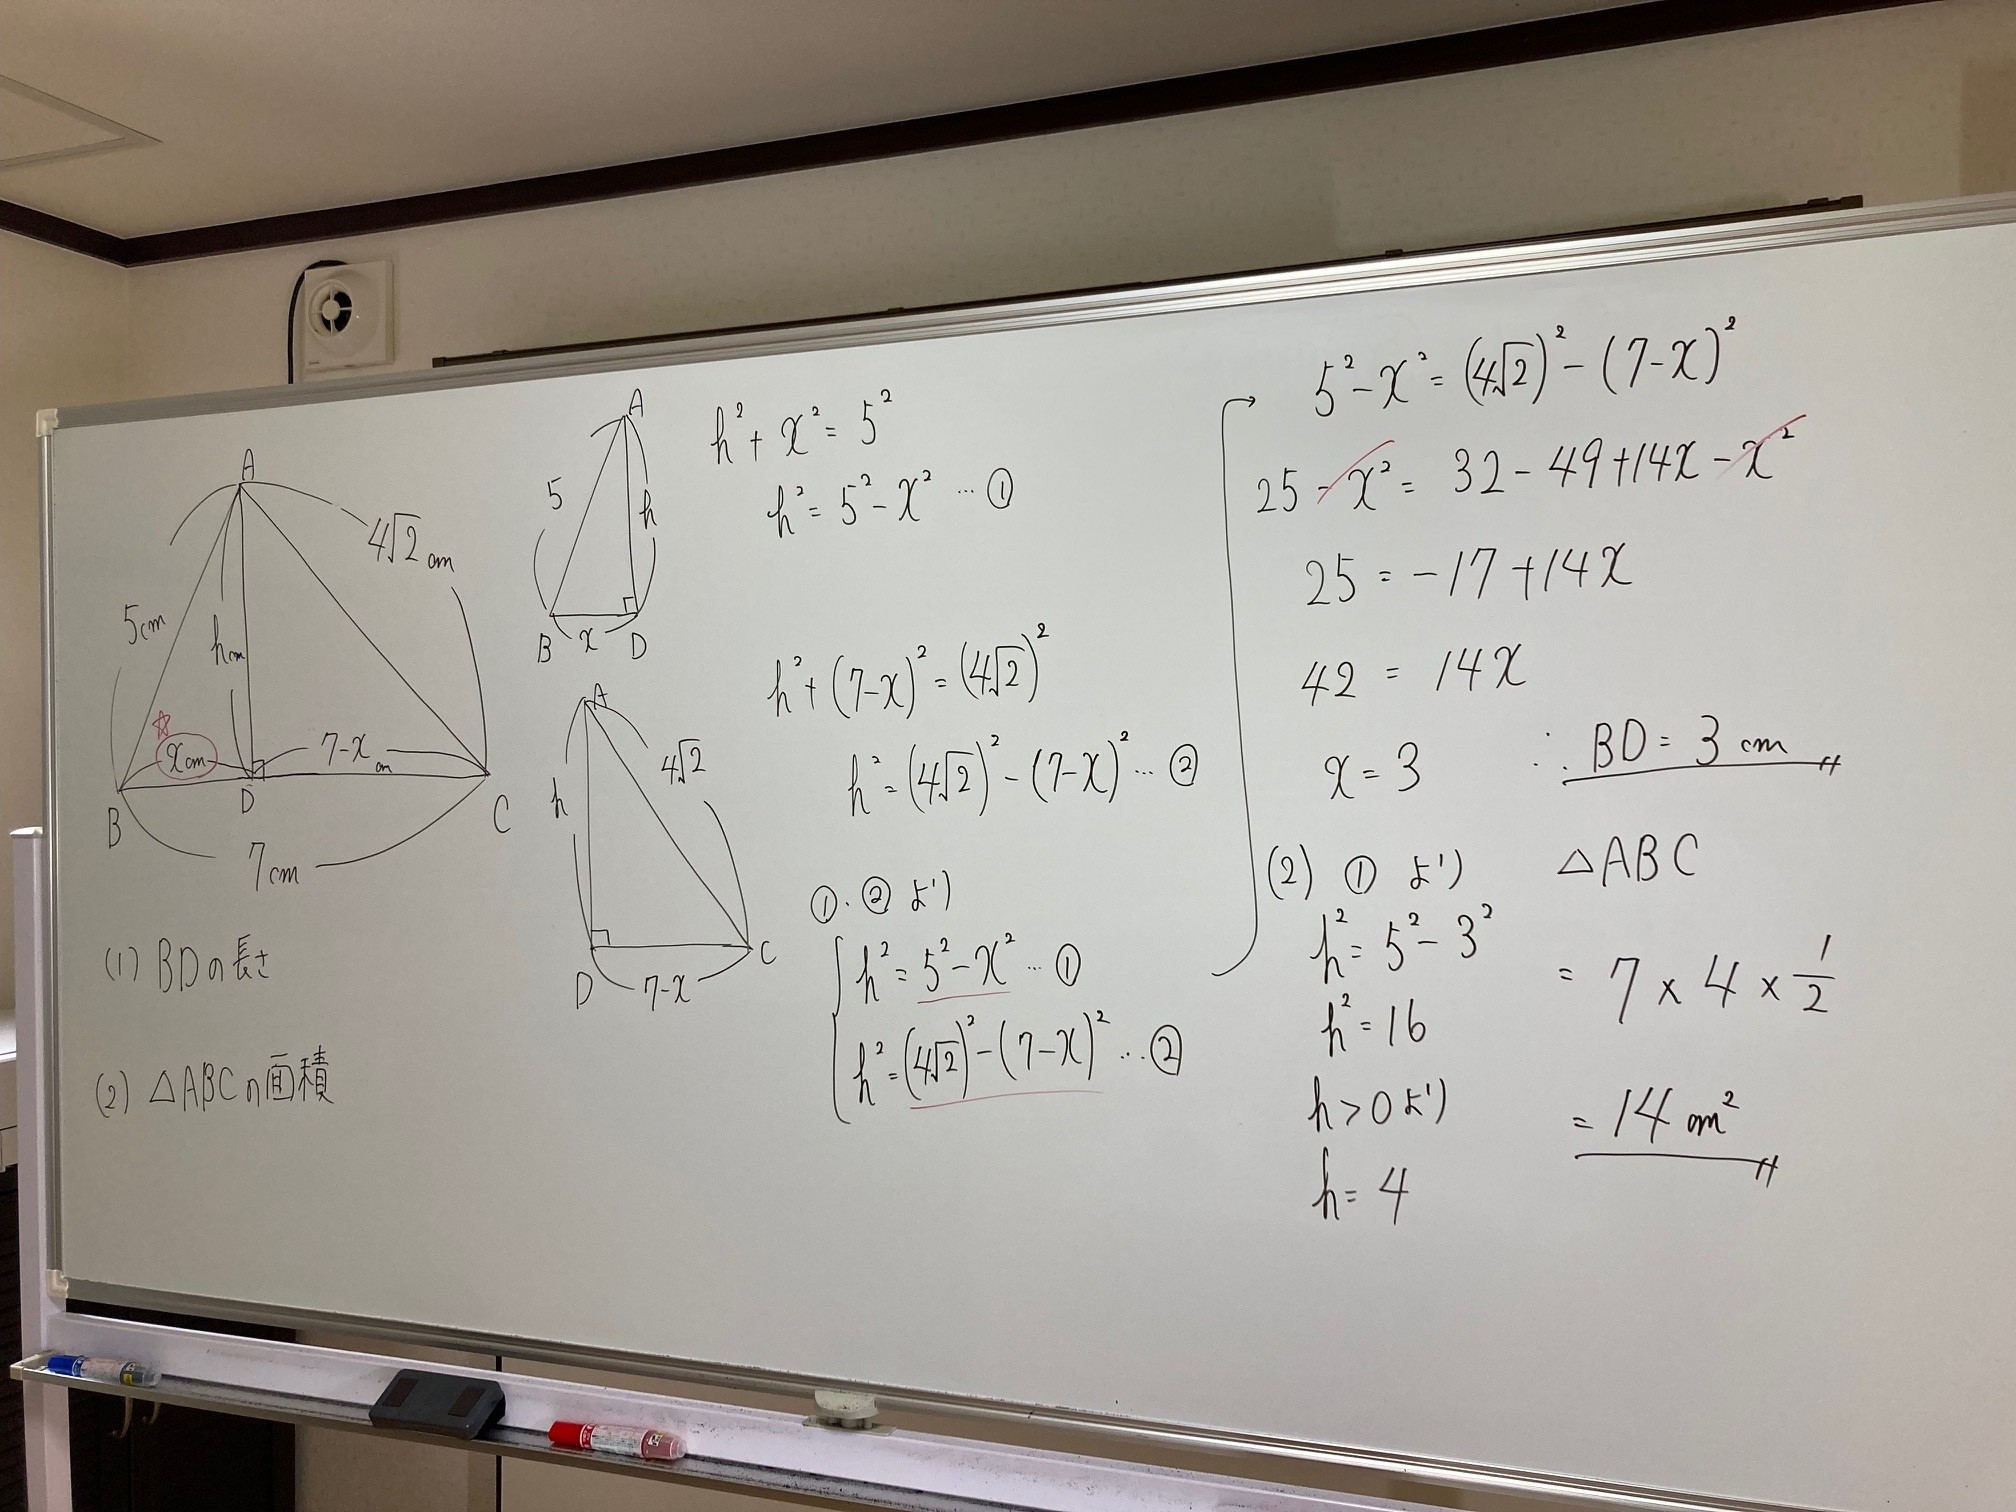 A
5cm
4√2 cm
h cm
x cm
7-x cm
B
D
C
7cm
(1) BDの長さ
(2) △ABCの面積
A
5
h
B
x
D
A
h
4√2
D
7-x
C
h²+x²=5²
h²=5²-x² … ①
h²+(7-x)²=(4√2)²
h²=(4√2)²-(7-x)² … ②
①.②より
h²=5²-x² … ①
h²=(4√2)²-(7-x)² … ②
5²-x²=(4√2)²-(7-x)²
25-x²=32-49+14x-x²
25=-17+14x
42=14x
x=3 ∴BD=3cm
(2) ①より
h²=5²-3²
h²=16
h>0より
h=4
△ABC
=7×4×1/2
=14cm²